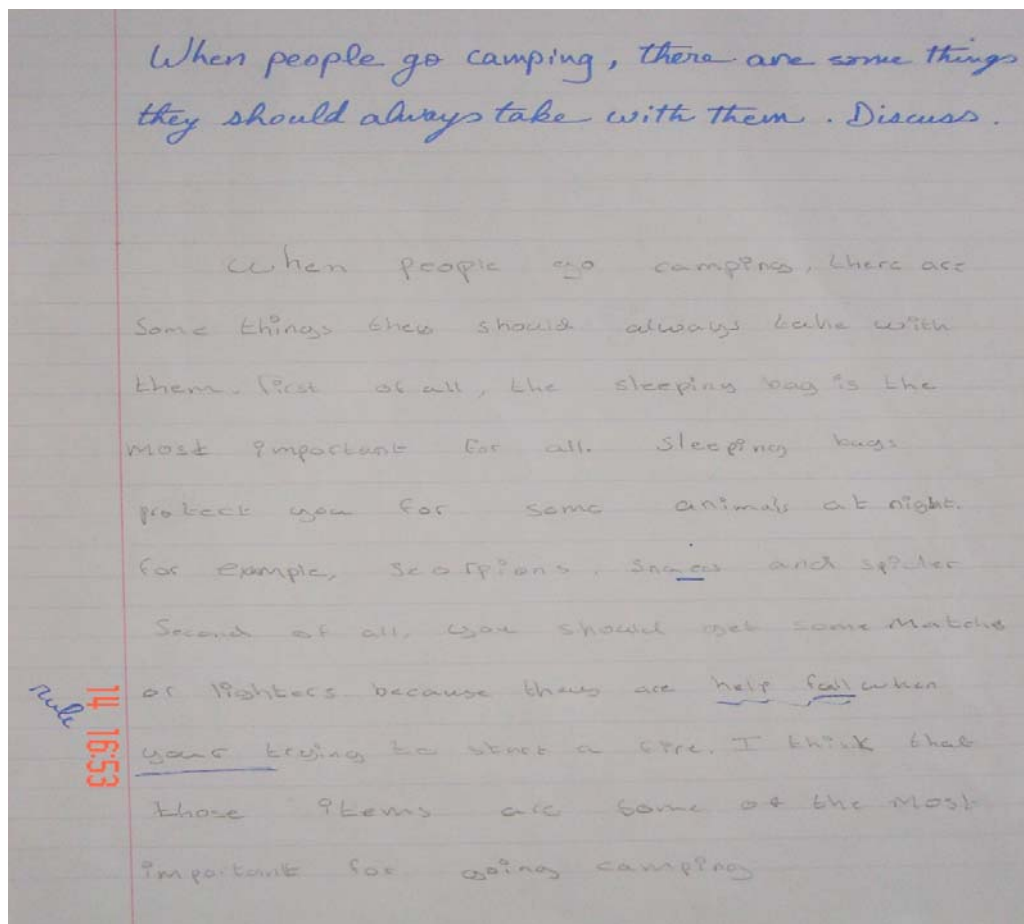 When people go camping, there are some things
they should always take with them. Discuss.
When people go camping, there are
some things they should always take with
them. first of all, the sleeping bag is the
most important for all. sleeping bags
protect you for some animals at night.
for example, scorpions, snaces and spider
Second of all, you should get some matchs
or lighters because they are help full when
your trying to start a fire. I think that
those items are some of the most
important for going camping
rule
14 16:53